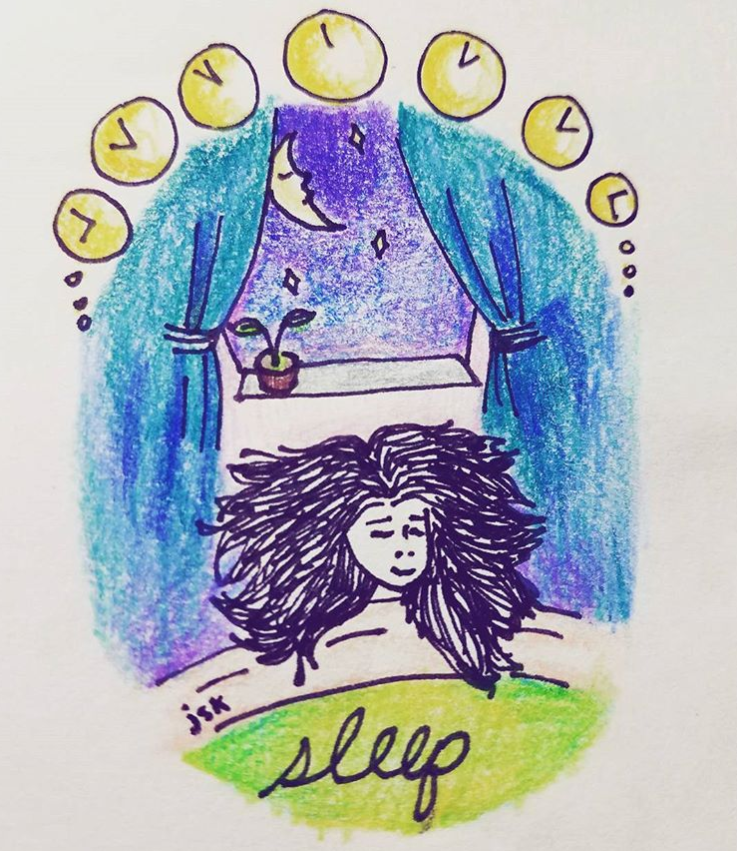 jsk
sleep